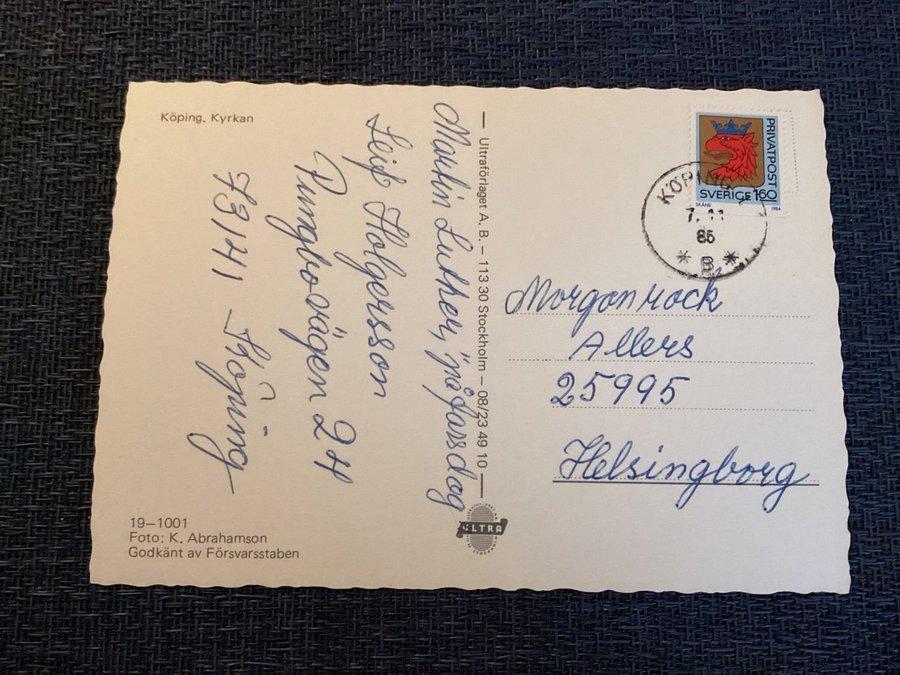 Köping. Kyrkan
Martin Luther, "mårtensdag
Leif Holgersson
Pungbovägen 24
73141 Köping
19–1001
Foto: K. Abrahamson
Godkänt av Försvarsstaben
Ultraförlaget A. B. – 113 30 Stockholm – 08/23 49 10
ULTRA
PRIVATPOST
SVERIGE 160
SKÅNE 1984
KÖPING 1
7. 11
85
* B *
Morgonrock
Allers
25995
Helsingborg